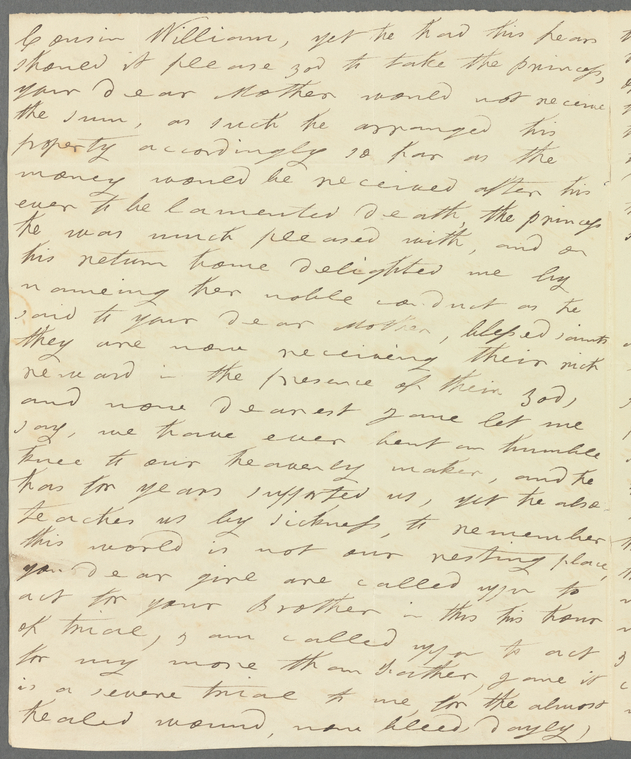 Cousin William, yet he had his fears
should it please God to take the princess,
your dear Mother would not receive
the sum, as such he arranged his
property accordingly so far as the
money would be received after his
ever to be lamented death, the princess
he was much pleased with, and on
his return home delighted me by
nameing her noble conduct as he
said to your dear Mother, blessed saints
they are now receiving their rich
reward in the presence of their God,
and now dearest Jane let me
say, we have ever bent an humble
knee to our heavenly maker, and he
has for years supported us, yet he also
teaches us by sickness, to remember
this world is not our resting place,
you dear girl are called upon to
act for your Brother in this his hour
of trial, I am called upon to act
for my more than Father, Jane it
is a severe trial to me, for the almost
healed wound, now bleed dayly,